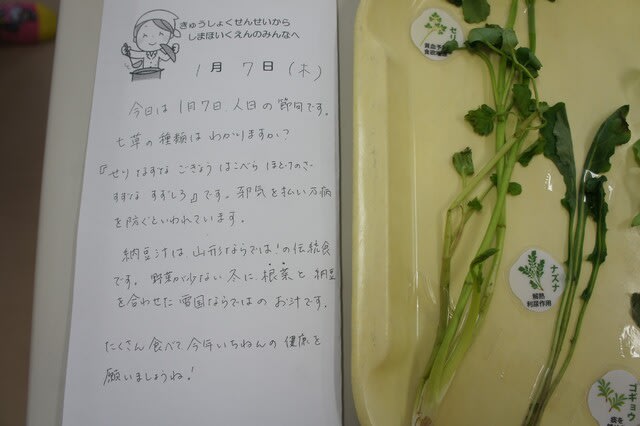 きゅうしょくせんせいから
しまほいくえんのみんなへ
1月 7日 (木)
今日は1月7日、人日の節句です。
七草の種類はわかりますか?
『せり なずな ごぎょう はこべら ほとけのざ
すずな すずしろ』です。邪気を払い万病
を防ぐといわれています。
納豆汁は、山形ならでは!の伝統食
です。野菜が少ない冬に、根菜と、納豆
を合わせた雪国ならではのお汁です。
たくさん食べて今年いちねんの健康を
願いましょうね!
セリ
貧血予
食欲増進
ナズナ
解熱
利尿作用
ゴギョウ
痰を